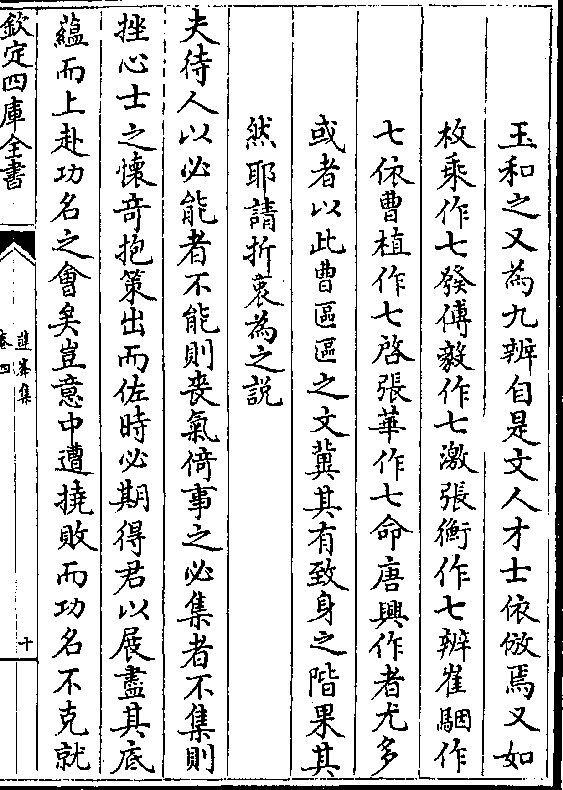 玉和之又為九辨自是文人才士依倣焉又如
枚乘作七發傅毅作七激張衡作七辨崔駰作
七依曹植作七啓張華作七命唐興作者尤多
或者以此曹區區之文冀其有致身之階果其
然耶請折衷為之説
夫待人以必能者不能則丧氣倚事之必集者不集則
挫心士之懐奇抱策出而佐時必期得君以展盡其底
蘊而上赴功名之會矣豈意中遭撓敗而功名不克就
欽定四庫全書
卷四
十